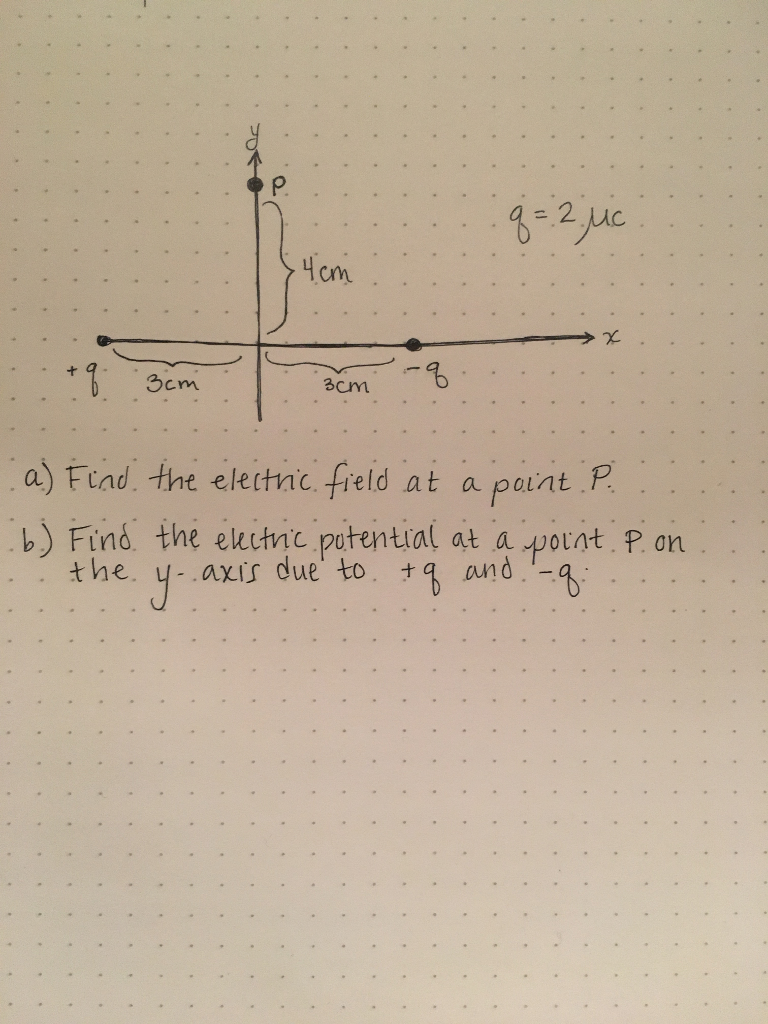 y
P
q = 2 μc
4cm
x
+q 3cm 3cm -q
a) Find the electric field at a point P.
b) Find the electric potential at a point P on
the y-axis due to +q and -q.